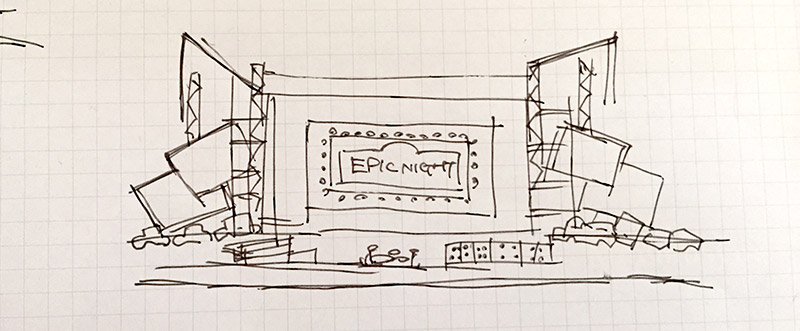 EPIC NIGHT